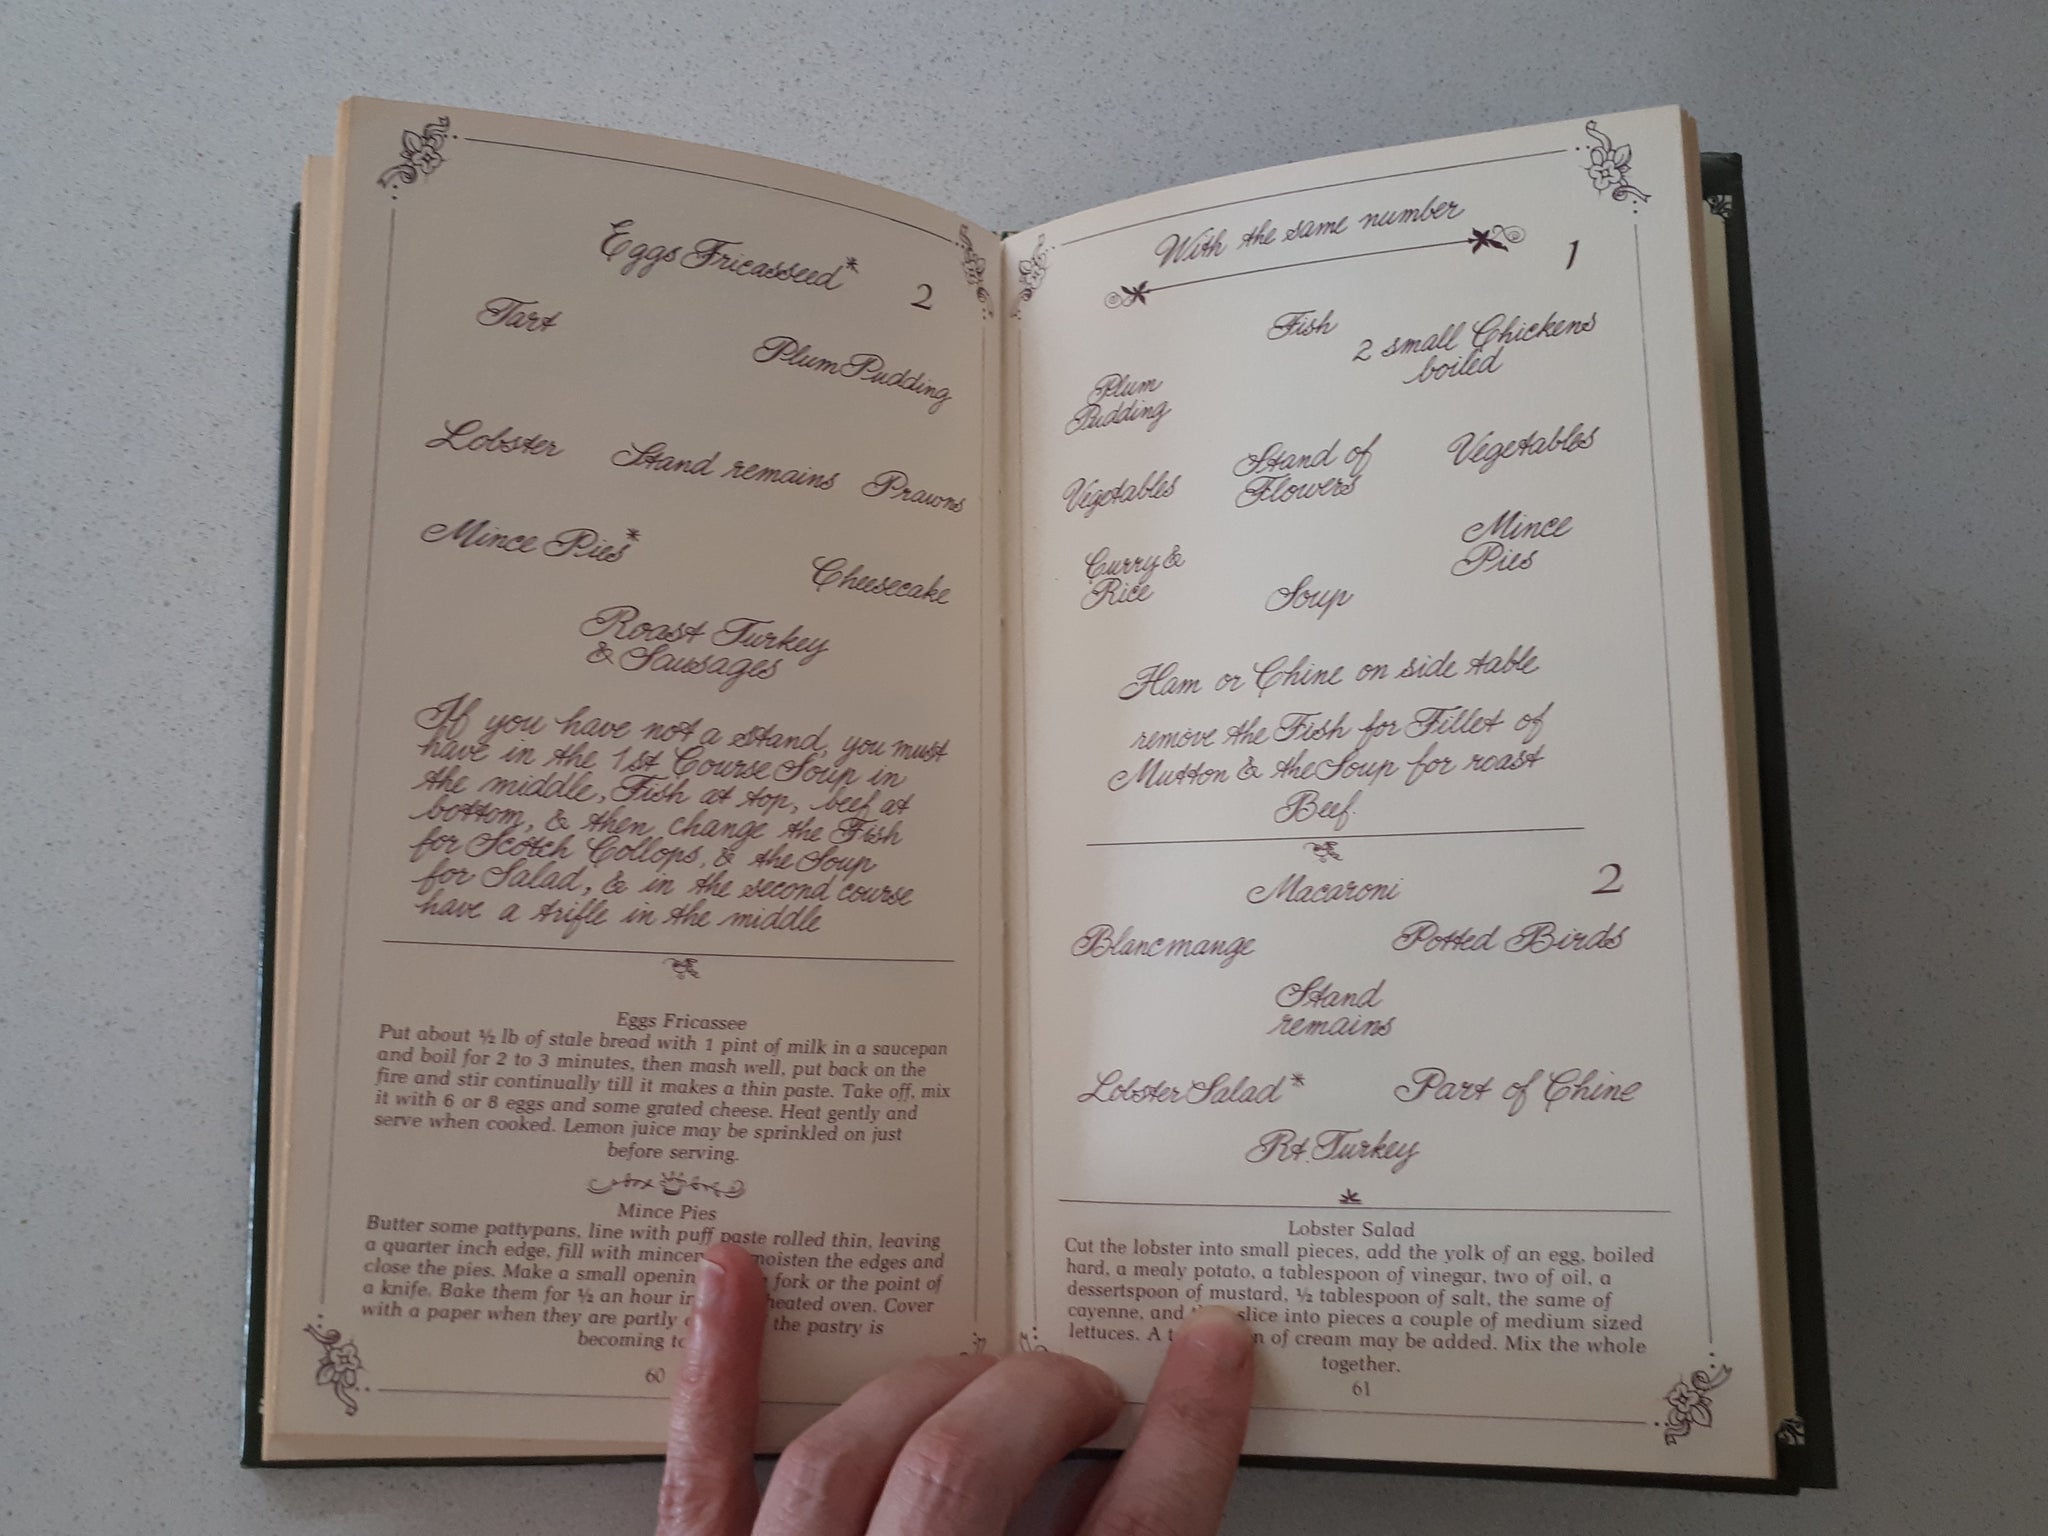 Eggs Fricasseed*
2
Tart
Plum Pudding
Lobster Stand remains Prawns
Mince Pies*
Cheesecake
Roast Turkey
& Sausages
If you have not a stand, you must
have in the 1st Course Soup in
the middle, Fish at top, beef at
bottom, & then change the Fish
for Scotch Collops, & the Soup
for Salad, & in the second course
have a trifle in the middle
Eggs Fricassee
Put about ½ lb of stale bread with 1 pint of milk in a saucepan
and boil for 2 to 3 minutes, then mash well, put back on the
fire and stir continually till it makes a thin paste. Take off, mix
it with 6 or 8 eggs and some grated cheese. Heat gently and
serve when cooked. Lemon juice may be sprinkled on just
before serving.
Mince Pies
Butter some pattypans, line with puff paste rolled thin, leaving
a quarter inch edge, fill with mincem moisten the edges and
close the pies. Make a small openin fork or the point of
a knife. Bake them for ½ an hour in heated oven. Cover
with a paper when they are partly the pastry is
becoming to
60
With the same number
1
Fish
2 small Chickens
boiled
Plum
Pudding
Stand of
Flowers
Vegetables
Vegetables
Mince
Pies
Curry &
Rice
Soup
Ham or Chine on side table
remove the Fish for Fillet of
Mutton & the Soup for roast
Beef.
Macaroni
2
Blancmange
Potted Birds
Stand
remains
Lobster Salad*
Part of Chine
Rt. Turkey
Lobster Salad
Cut the lobster into small pieces, add the yolk of an egg, boiled
hard, a mealy potato, a tablespoon of vinegar, two of oil, a
dessertspoon of mustard, ½ tablespoon of salt, the same of
cayenne, and slice into pieces a couple of medium sized
lettuces. A t n of cream may be added. Mix the whole
together.
61